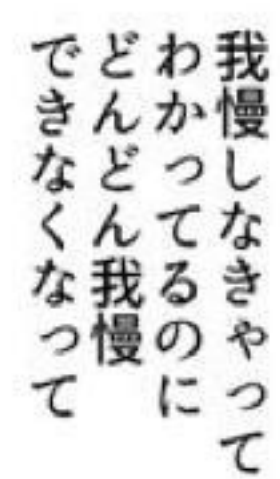 我慢しなきゃって
わかってるのに
どんどん我慢
できなくなって